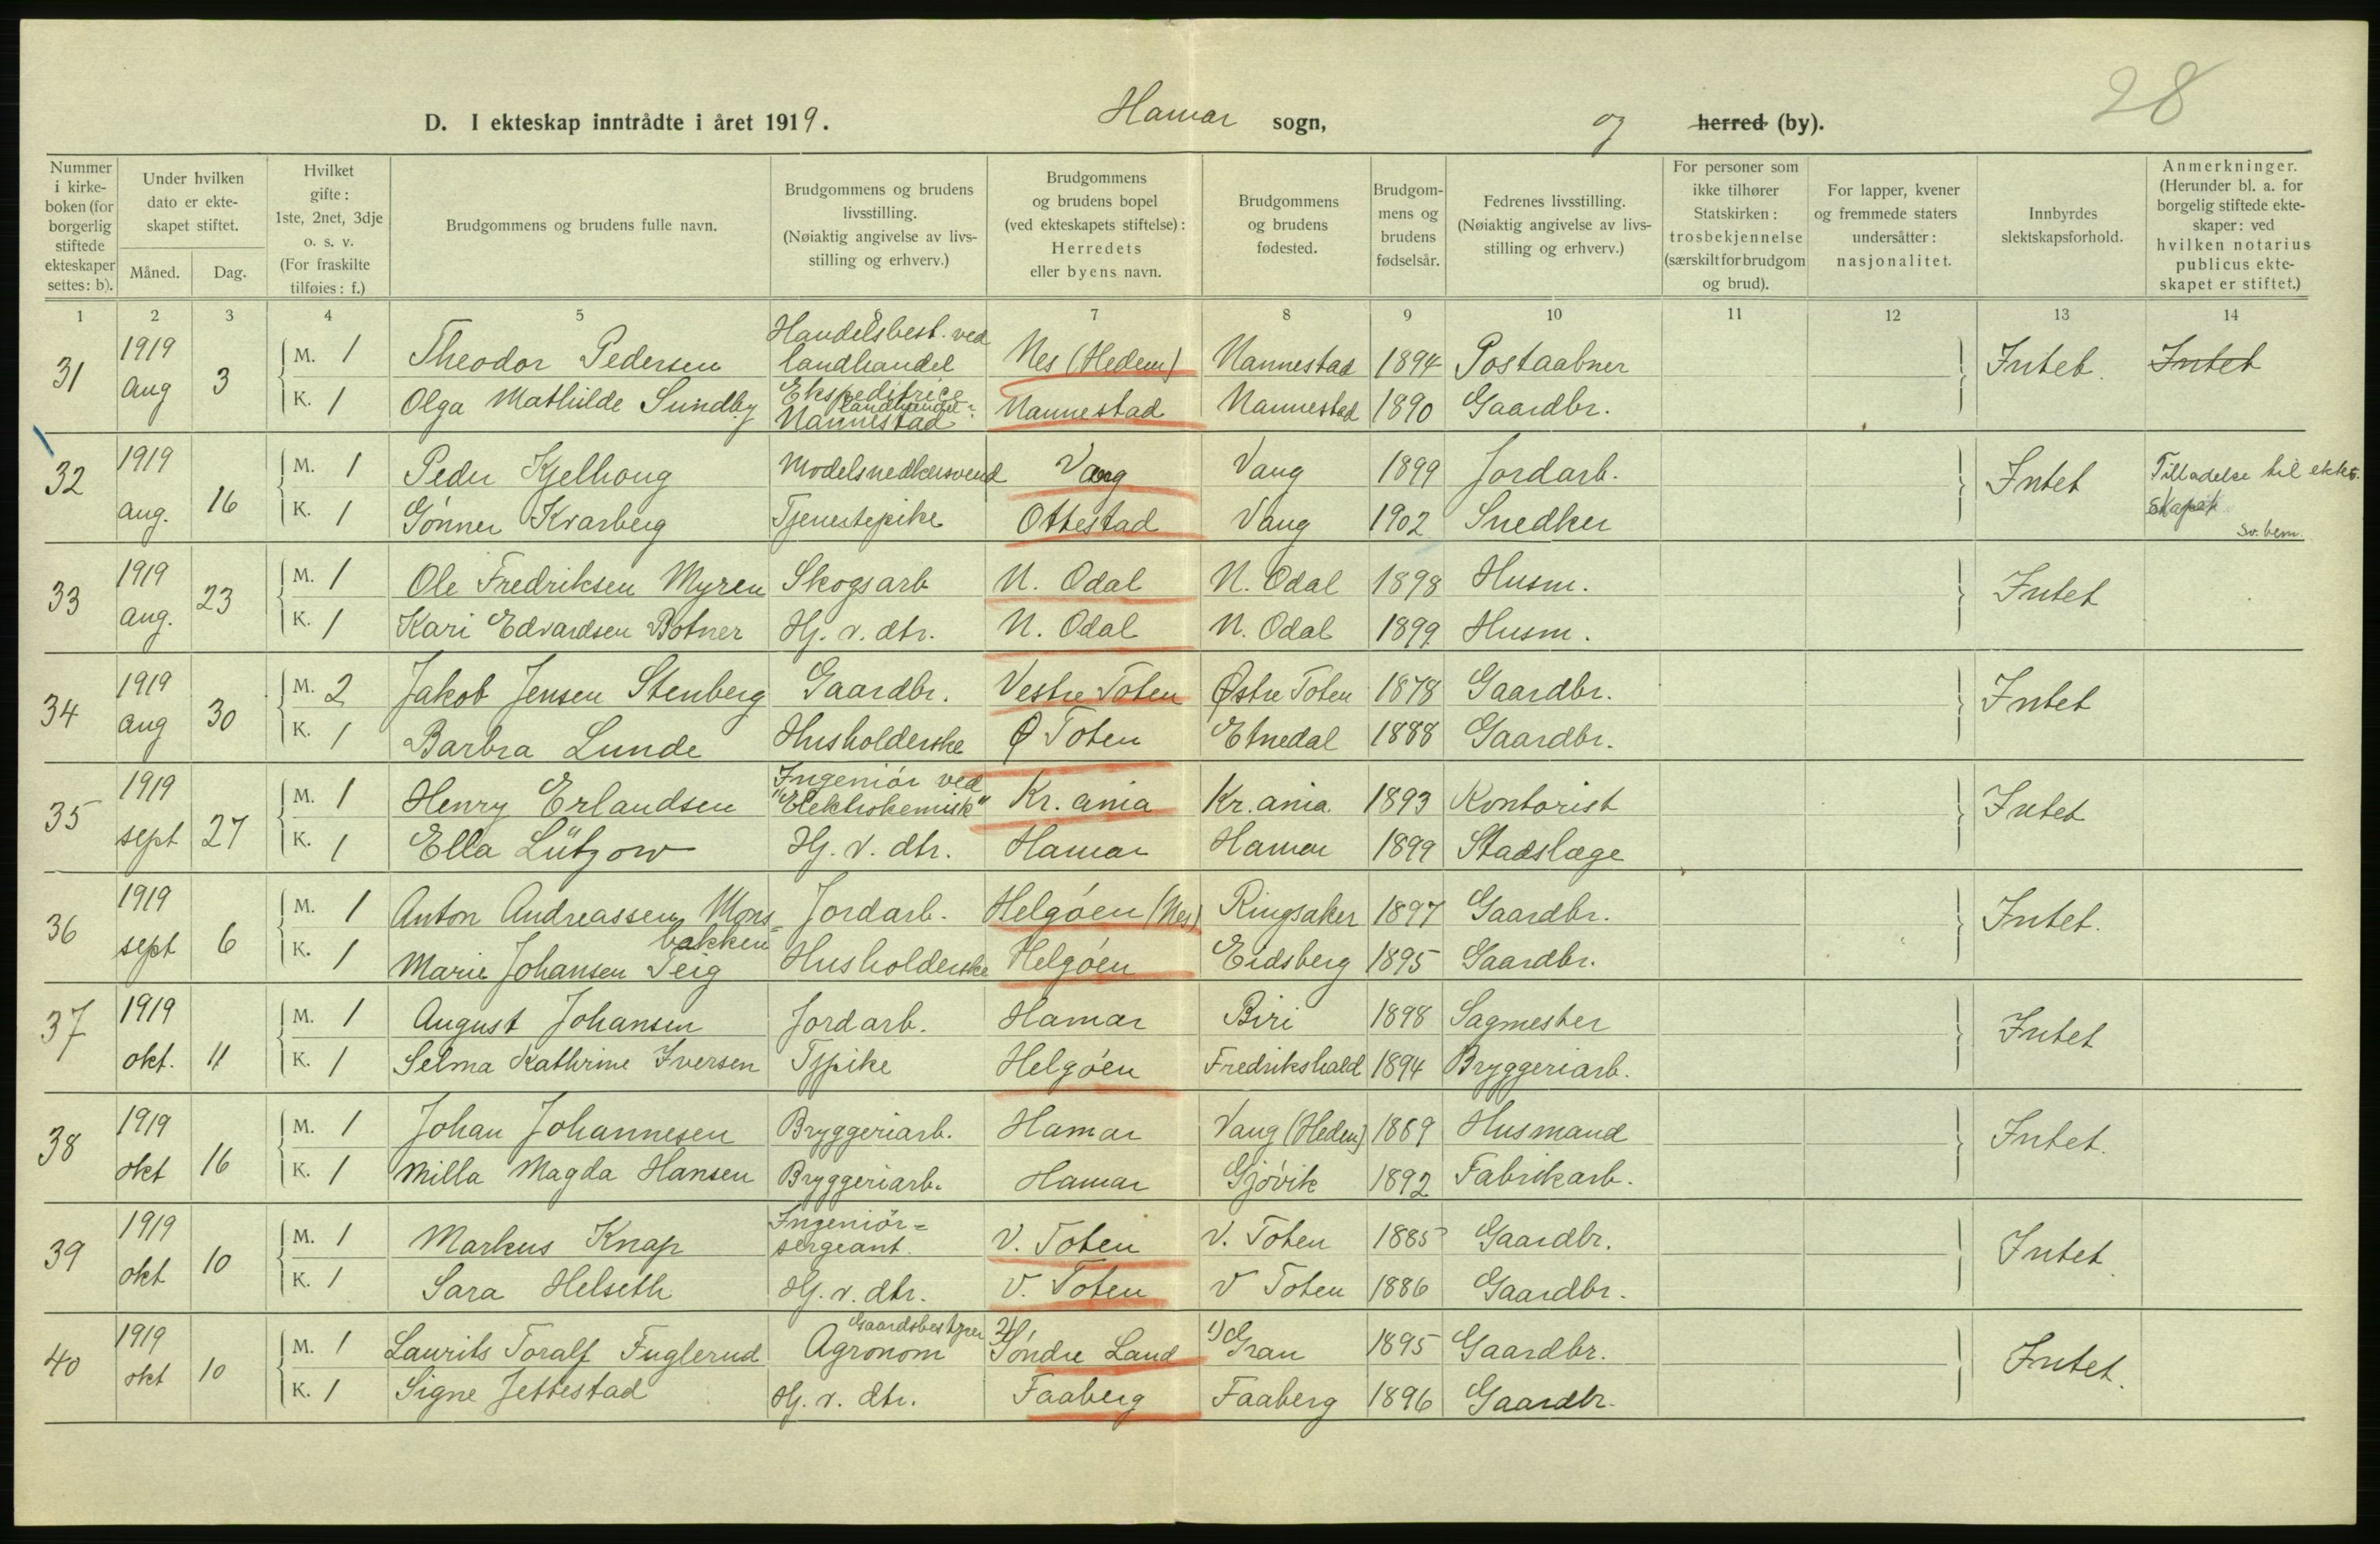 28
D. I ekteskap inntrådte i året 1919. Hamar sogn, og herred (by).
Nummer i kirkeboken (for borgerlig stiftede ekteskaper settes: b).
Under hvilken dato er ekteskapet stiftet.
Måned. Dag.
Hvilket gifte: 1ste, 2net, 3dje o. s. v. (For fraskilte tilføies: f.)
Brudgommens og brudens fulle navn.
Brudgommens og brudens livsstilling. (Nøiaktig angivelse av livsstilling og erhverv.)
Brudgommens og brudens bopel (ved ekteskapets stiftelse): Herredets eller byens navn.
Brudgommens og brudens fødested.
Brudgommens og brudens fødselsår.
Fedrenes livsstilling. (Nøiaktig angivelse av livsstilling og erhverv.)
For personer som ikke tilhører Statskirken: trosbekjennelse (særskilt for brudgom og brud).
For lapper, kvener og fremmede staters undersåtter: nasjonalitet.
Innbyrdes slektskapsforhold.
Anmerkninger. (Herunder bl. a. for borgelig stiftede ekteskaper: ved hvilken notarius publicus ekteskapet er stiftet.)
1 2 3 4 5 6 7 8 9 10 11 12 13 14
31 1919 Aug 3 M. 1 Theodor Pedersen Handelsbest. ved landhandel Nes (Hedem) Nannestad 1894 Postaabner Intet. Intet
K. 1 Olga Mathilde Sundby Ekspeditrice landhandel Nannestad Nannestad Nannestad 1890 Gaardbr.
32 1919 aug. 16 M. 1 Peder Kjelhoug Modelsnedkersvend Vang Vang 1899 Jordarb. Intet Tilladelse til ekteskapet sv. bem.
K. 1 Gönner Kvarberg Tjenestepike Ottestad Vang 1902 Snedker
33 1919 aug. 23 M. 1 Ole Fredriksen Myren Skogsarb N. Odal N. Odal 1898 Husm. Intet
K. 1 Kari Edvardsen Botner Hj. v. dtr. N. Odal N. Odal 1899 Husm.
34 1919 aug 30 M. 2 Jakob Jensen Stenberg Gaardbr. Vestre Toten Østre Toten 1878 Gaardbr. Intet
K. 1 Barbra Lunde Husholderske Ø Toten Etnedal 1888 Gaardbr.
35 1919 sept 27 M. 1 Henry Erlandsen Ingeniör ved "Elektrokemisk" Kr.ania Kr.ania. 1893 Kontorist Intet
K. 1 Ella Lützow Hj. v. dtr. Hamar Hamar 1899 Stadslæge
36 1919 sept 6 M. 1 Anton Andreassen Mons=bakken Jordarb. Helgöen (Nes) Ringsaker 1897 Gaardbr. Intet.
K. 1 Marie Johansen Teig Husholderske Helgöen Eidsberg 1895 Gaardbr.
37 1919 okt. 11 M. 1 August Johansen Jordarb. Hamar Biri 1898 Sagmester Intet
K. 1 Selma Kathrine Iversen Tjpike Helgöen Fredrikshald 1894 Bryggeriarb.
38 1919 okt 16 M. 1 Johan Johannesen Bryggeriarb. Hamar Vang (Hedem) 1889 Husmand Intet.
K. 1 Milla Magda Hansen Bryggeriarb. Hamar Gjövik 1892 Fabrikarb.
39 1919 okt 10 M. 1 Markus Knap Ingeniör=sergeant. V. Toten V. Toten 1885 Gaardbr. Intet.
K. 1 Sara Helseth Hj. v. dtr. V. Toten V Toten 1886 Gaardbr.
40 1919 okt 10 M. 1 Laurits Toralf Fuglerud Gaardsbestyrer Agronom 2) Söndre Land 1) Gran 1895 Gaardbr. Intet.
K. 1 Signe Jettestad Hj. v. dtr. Faaberg Faaberg 1896 Gaardbr.